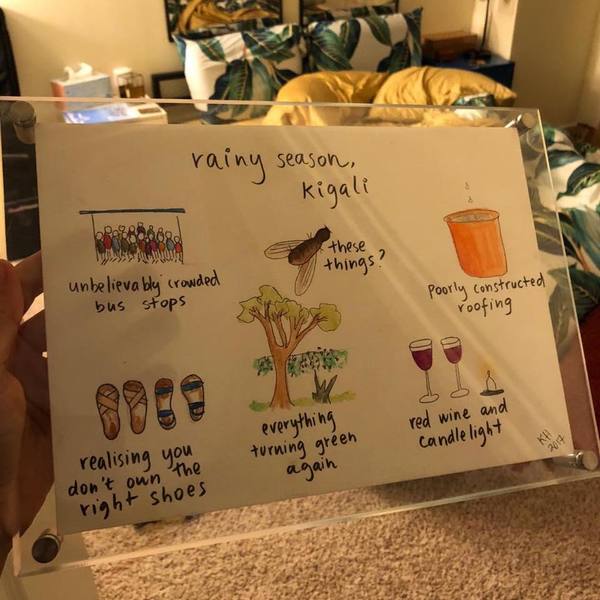 rainy season,
kigali
unbelievably crowded
bus stops
these
things?
poorly constructed
roofing
realising you
don't own the
right shoes
everything
turning green
again
red wine and
candlelight
KH
2017